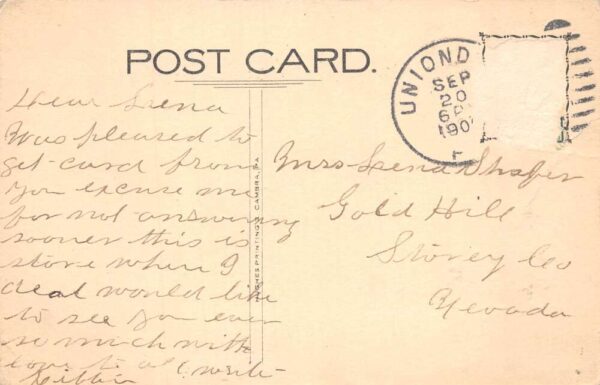 POST CARD.
UNIOND
SEP
20
6 P
190
Dear Lena
Was pleased to
get card from
you excuse me
for not answering
sooner this is
store where I
deal would like
to see you ever
so much with
love to
write
Mrs Lena Shafer
Gold Hill
Storey Co
Nevada
HUGHES PRINTING CO. CAMBRA, PA